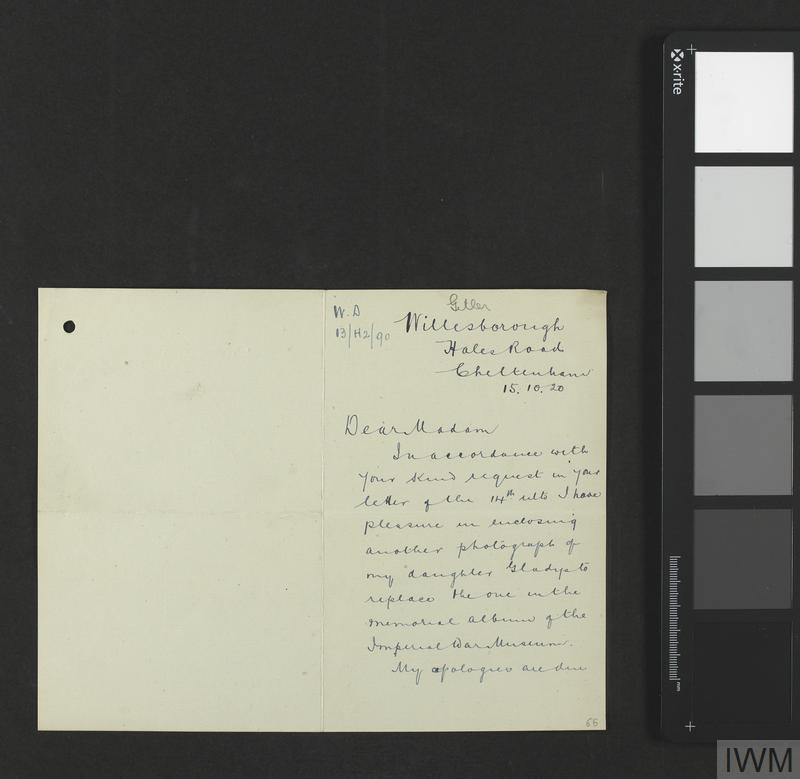 Willesborough
Hales Road
Cheltenham
15.10.20
W.D
13/H2/90
Dear Madam
In accordance with
your kind request in your
letter of the 14th ulto I have
pleasure in enclosing
another photograph of
my daughter Gladys to
replace the one in the
memorial album of the
Imperial War Museum.
My apologies are due
65
x-rite
mm
IWM